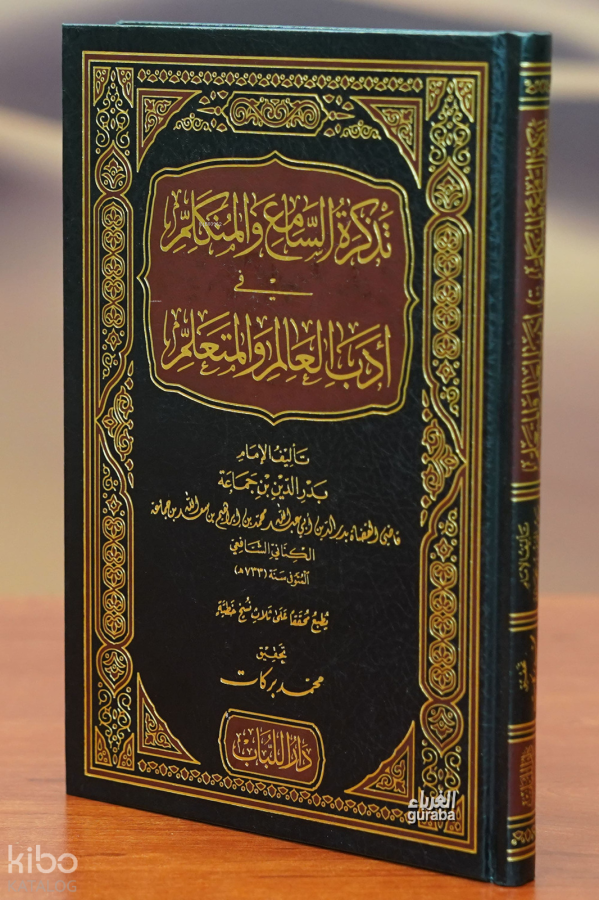 تذكرة السامع والمتكلم
في
أدب العالم والمتعلم
تأليف الإمام
بدر الدين بن جماعة
قاضي القضاة بدر الدين أبي عبد الله محمد بن إبراهيم بن سعد الله بن جماعة
الكناني الشافعي
المتوفى سنة (٧٣٣ھ)
يطبع محققا على ثلاث نسخ خطية
تحقيق
محمد بركات
دار اللباب
الغرباء
guraba
kibo